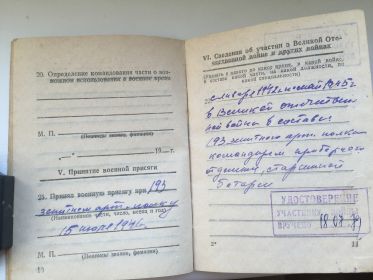 20. Определение командования части о воз-
можном использовании в военное время
М. П.
(Подпись, звание, фамилия)
19 г.
V. Принятие военной присяги
21. Принял военную присягу при 193
зенитном арт. полку
(Наименование части, число, месяц и год)
15 июля 1941 г.
М. П.
(Подпись, звание, фамилия)
10
VI. Сведения об участии в Великой Оте-
чественной войне и других войнах
(Указать с какого по какое время, в какой войне,
в составе какой части, на какой должности, по
какой специальности)
22. с января 1942 по май 1945 г
в Великой отечествен
ной войны в составе
193 зенитно арт. полка
командиром приборного
отделения, старшиной
батареи
УДОСТОВЕРЕНИЕ
УЧАСТНИКА
ВРУЧЕНО 18.07.79
2*
11